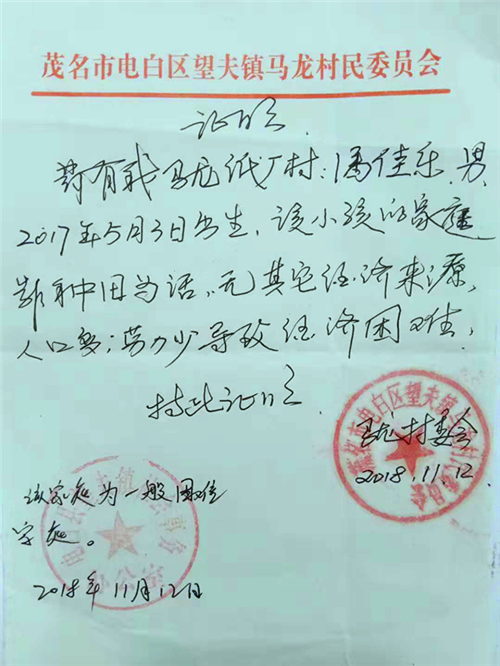 茂名市电白区望夫镇马龙村民委员会
证明
兹有我马龙纸厂村:潘佳乐,男,
2017年5月3日出生,该小孩的家庭
靠种田为活,无其它经济来源,
人口多;劳力少导致经济困难,
特此证明
马龙村委会
2018.11.12
该家庭为一般困难
家庭。
2018年11月12日
茂名市电白区望夫镇马龙村民委员会